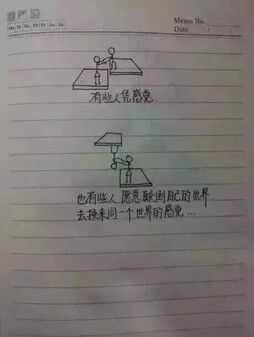 Memo No.
Date / /
Mo Tu We Th Fr Sa Su
有些人凭感觉
也有些人愿意颠倒自己的世界
去换来同一个世界的感觉...